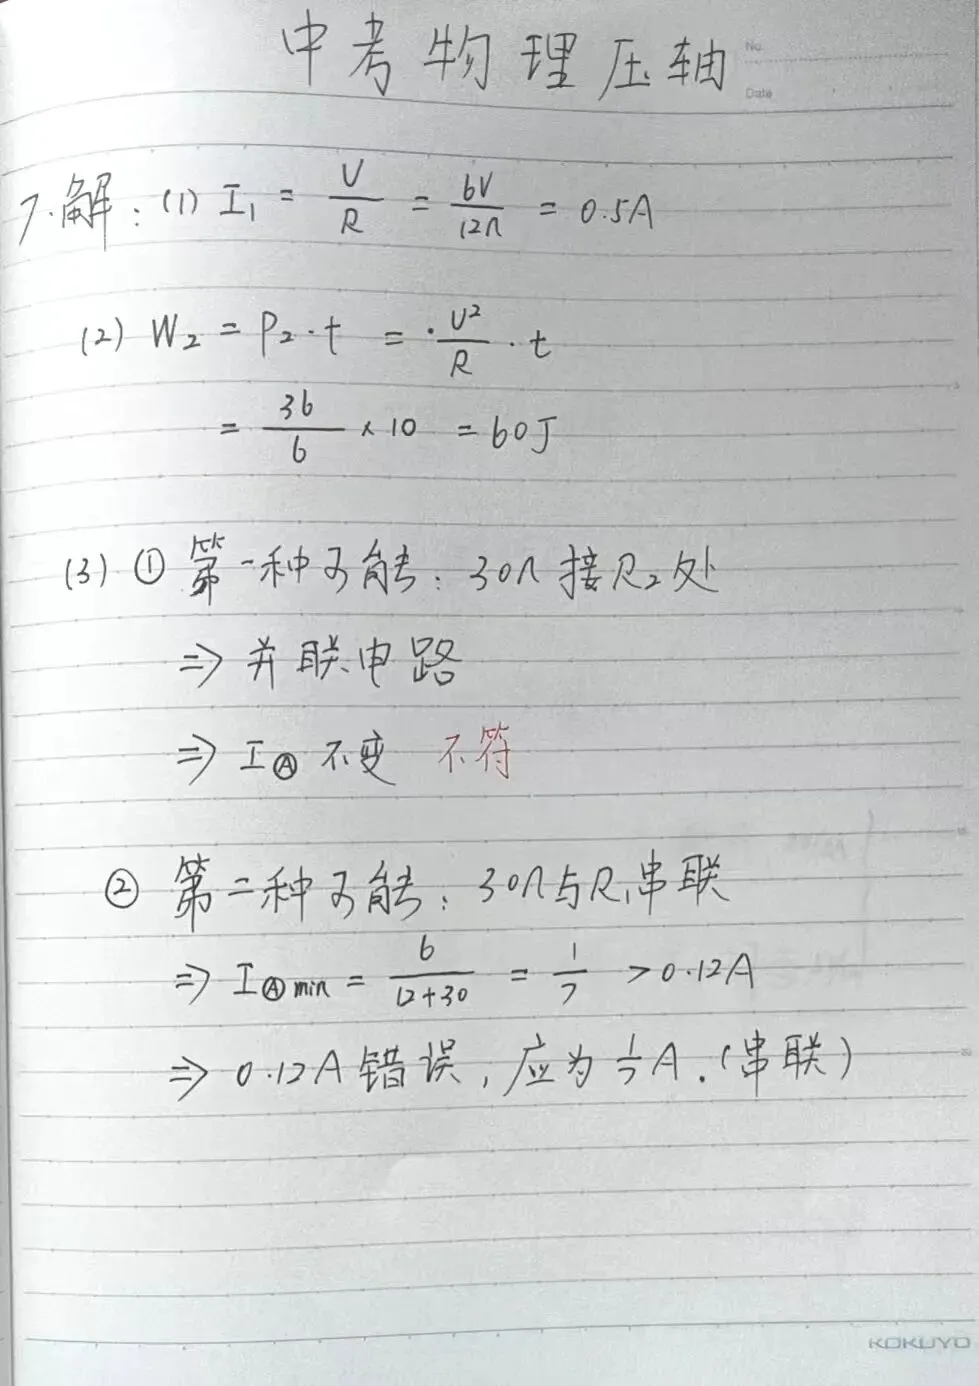 中考物理压轴
No.
Date
7.解：(1) I₁ = U/R = 6V/12Ω = 0.5A
(2) W₂ = P₂·t = ·U²/R ·t
= 36/6 × 10 = 60J
(3) ① 第一种可能：30Ω接R₂处
⇒ 并联电路
⇒ IⒶ 不变 不符
② 第二种可能：30Ω与R₁串联
⇒ IⒶmin = 6/(12+30) = 1/7 > 0.12A
⇒ 0.12A错误，应为1/7A.(串联)
KOKUYO